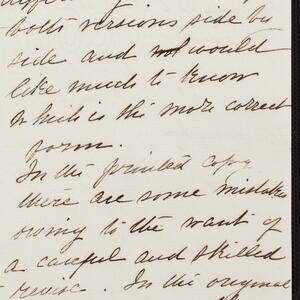 both versions side by
side and would
like much to know
which is the more correct
form.
In the printed copy
there are some mistakes
owing to the want of
a careful and skilled
revise. In the original